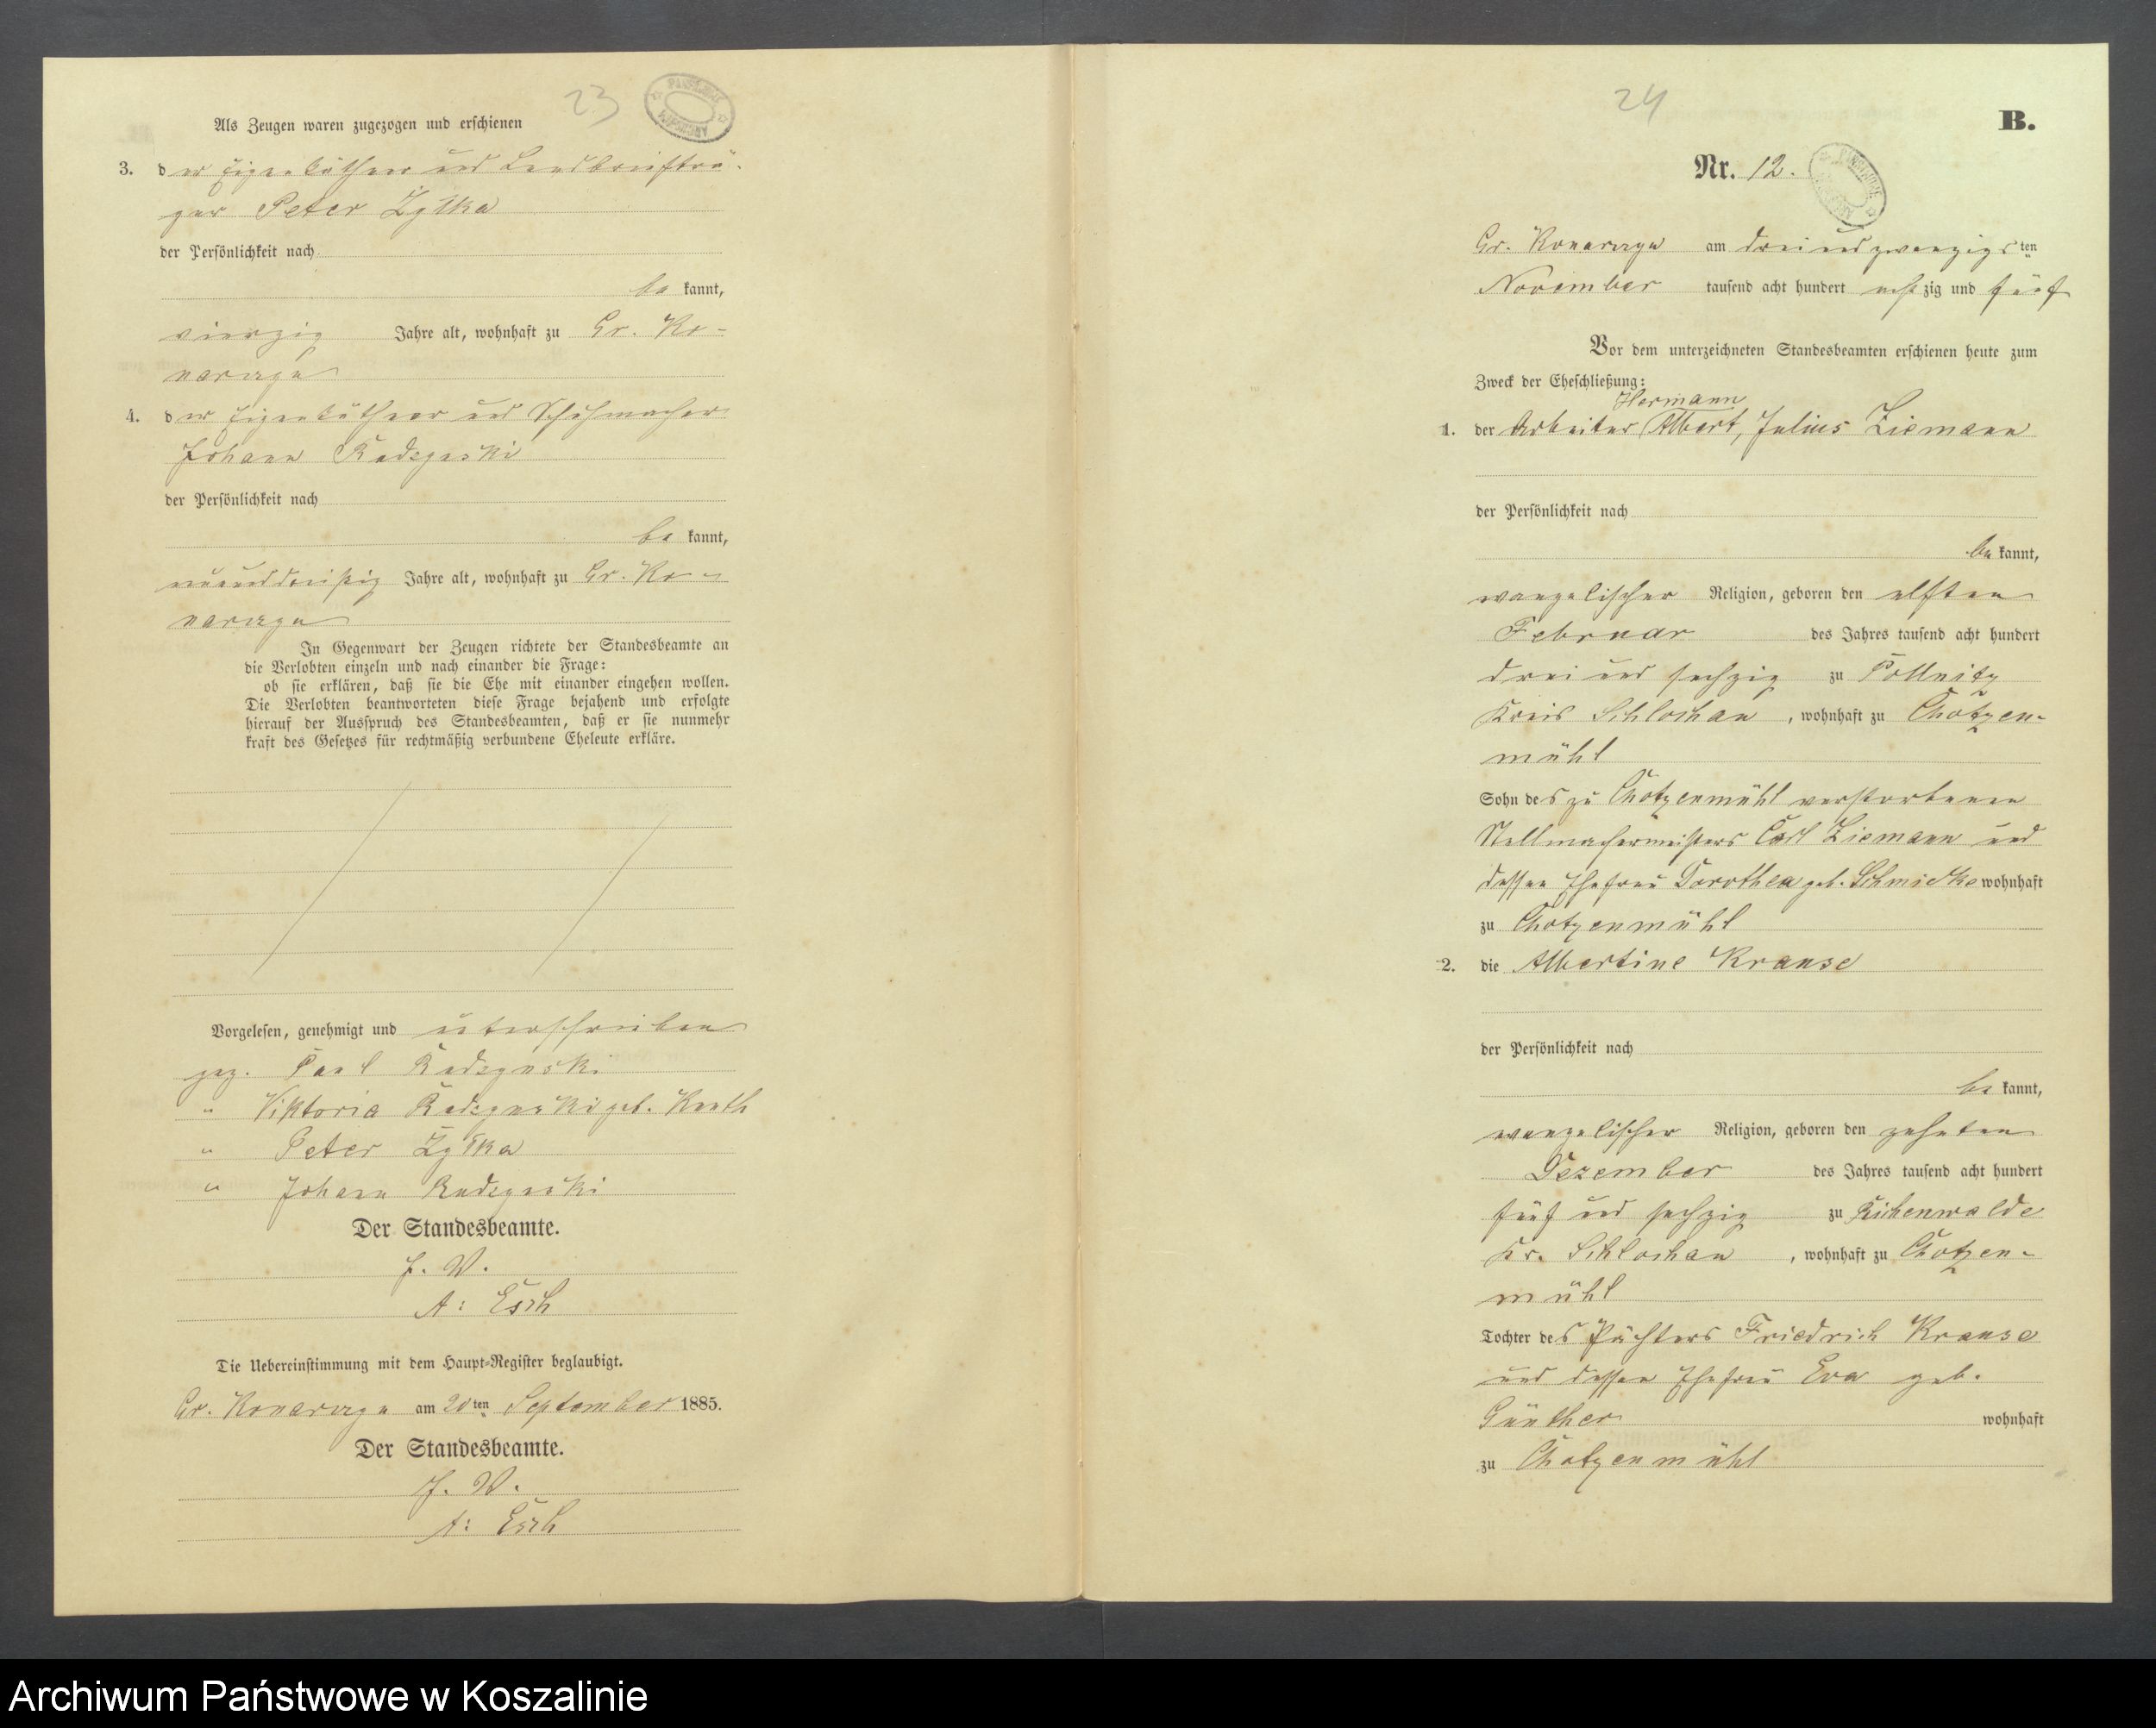 23
Als Zeugen waren zugezogen und erschienen
3. der Eigenkäthner und Landbriefträ-
ger Peter Zylka
der Persönlichkeit nach
be kannt,
vierzig Jahre alt, wohnhaft zu Gr. Ko-
narczyn
4. der Eigenkäthner und Schuhmacher
Johann
der Persönlichkeit nach
be kannt,
neununddreißig Jahre alt, wohnhaft zu Gr. Ko-
narczyn
In Gegenwart der Zeugen richtete der Standesbeamte an
die Verlobten einzeln und nach einander die Frage:
ob sie erklären, daß sie die Ehe mit einander eingehen wollen.
Die Verlobten beantworteten diese Frage bejahend und erfolgte
hierauf der Ausspruch des Standesbeamten, daß er sie nunmehr
kraft des Gesetzes für rechtmäßig verbundene Eheleute erkläre.
Vorgelesen, genehmigt und unterschrieben
gez. Paul
" Viktoria geb.
" Peter Zylka
" Johann
Der Standesbeamte.
J. V.
A: Esch
Die Uebereinstimmung mit dem Haupt-Register beglaubigt.
Gr. Konarczyn am 20ten September 1885.
Der Standesbeamte.
J. V.
A: Esch
24
B.
Nr. 12.
Gr. Konarczyn am dreiundzwanzigsten
November tausend acht hundert achtzig und fünf
Vor dem unterzeichneten Standesbeamten erschienen heute zum
Zweck der Eheschließung:
Hermann
1. der Arbeiter Albert, Julius Ziemann
der Persönlichkeit nach
be kannt,
evangelischer Religion, geboren den elften
Februar des Jahres tausend acht hundert
drei und sechzig zu Pollnitz
Kreis Schlochau, wohnhaft zu Chotzen-
mühl
Sohn des zu Chotzenmühl verstorbenen
Stellmachermeisters Carl Ziemann und
dessen Ehefrau Dorothea geb. Schmidke wohnhaft
zu Chotzenmühl
2. die Albertine Krause
der Persönlichkeit nach
be kannt,
evangelischer Religion, geboren den zehnten
Dezember des Jahres tausend acht hundert
fünf und sechzig zu Eichenwalde
Kr. Schlochau, wohnhaft zu Chotzen-
mühl
Tochter des Pächters Friedrich Krause
und dessen Ehefrau Eva geb.
Günther wohnhaft
zu Chotzenmühl
Archiwum Państwowe w Koszalinie